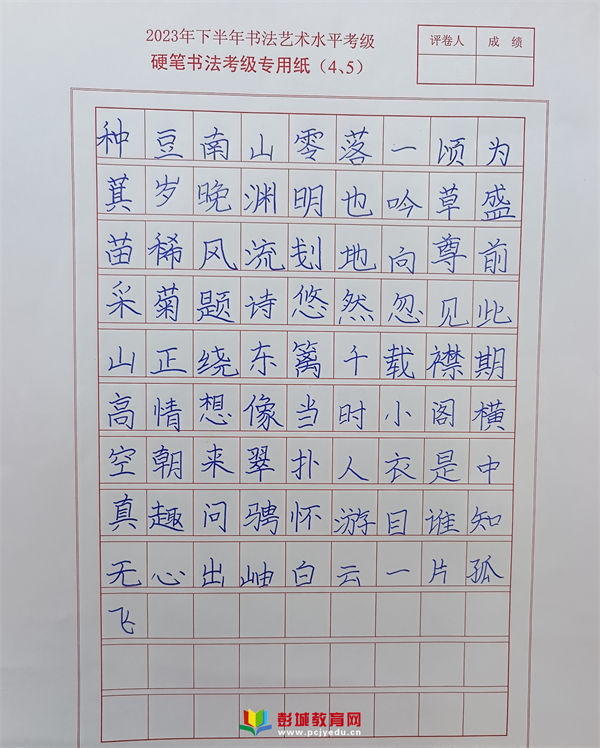 2023年下半年书法艺术水平考级
硬笔书法考级专用纸（4、5）
评卷人 成 绩
种豆南山零落一顷为
萁岁晚渊明也吟草盛
苗稀风流刬地向尊前
采菊题诗悠然忽见此
山正绕东篱千载襟期
高情想像当时小阁横
空朝来翠扑人衣是中
真趣问骋怀游目谁知
无心出岫白云一片孤
飞
彭城教育网
www.pcjyedu.cn